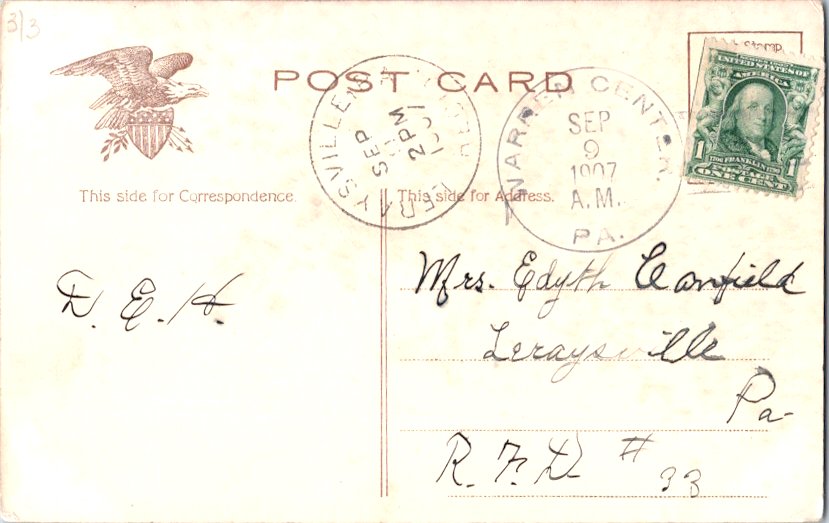 3/3
POST CARD
LERAYSVILLE
SEP
2 PM
1907
WARREN CENTER,
SEP
9
1907
A.M.
PA.
STAMP
UNITED STATES OF
AMERICA
1 1706 FRANKLIN 1790 1
POSTAGE
ONE CENT
This side for Correspondence.
This side for Address.
D. E. H.
Mrs. Edyth Canfield
Leraysville
Pa-
R. F. D # 33